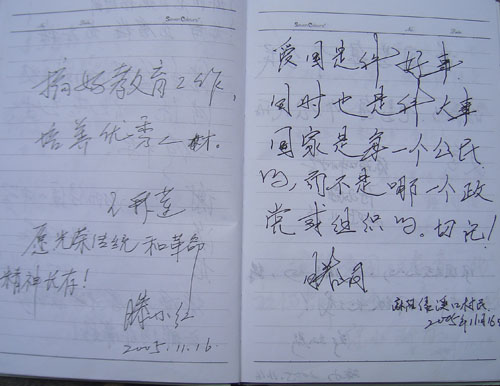 搞好教育工作,
培养优秀人材.
愿光荣传统和革命
精神长存!
滕小红
2005.11.16.
爱国是件好事
同时也是件大事
国家是每一个公民
的,而不是哪一个政
党或组织的。切记!
溪口村民
2005年11月16